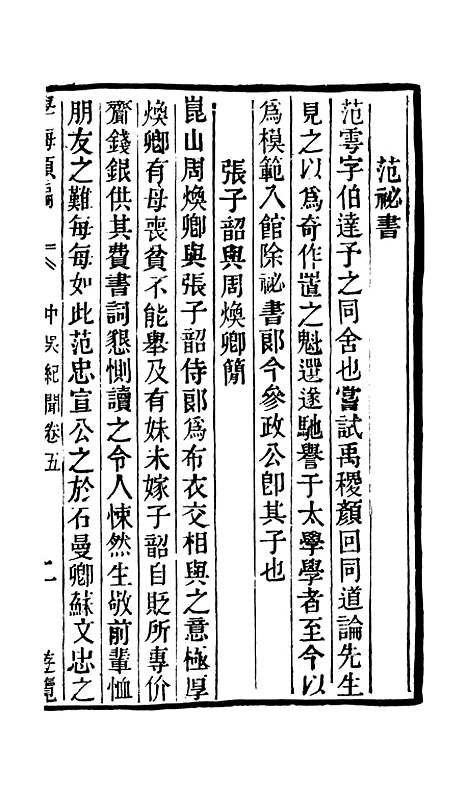 范祕書
范雩字伯達予之同舍也嘗試禹稷顏回同道論先生
見之以爲奇作置之魁選遂馳譽于太學學者至今以
爲模範入館除祕書郎今參政公卽其子也
張子韶與周煥卿簡
崑山周煥卿與張子韶侍郎爲布衣交相與之意極厚
煥卿有母喪貧不能舉及有妹未嫁子韶自貶所專价
齎錢銀供其費書詞懇惻讀之令人悚然生敬前輩恤
朋友之難每每如此范忠宣公之於石曼卿蘇文忠之
學海類編 中吳紀聞卷五 遊覽